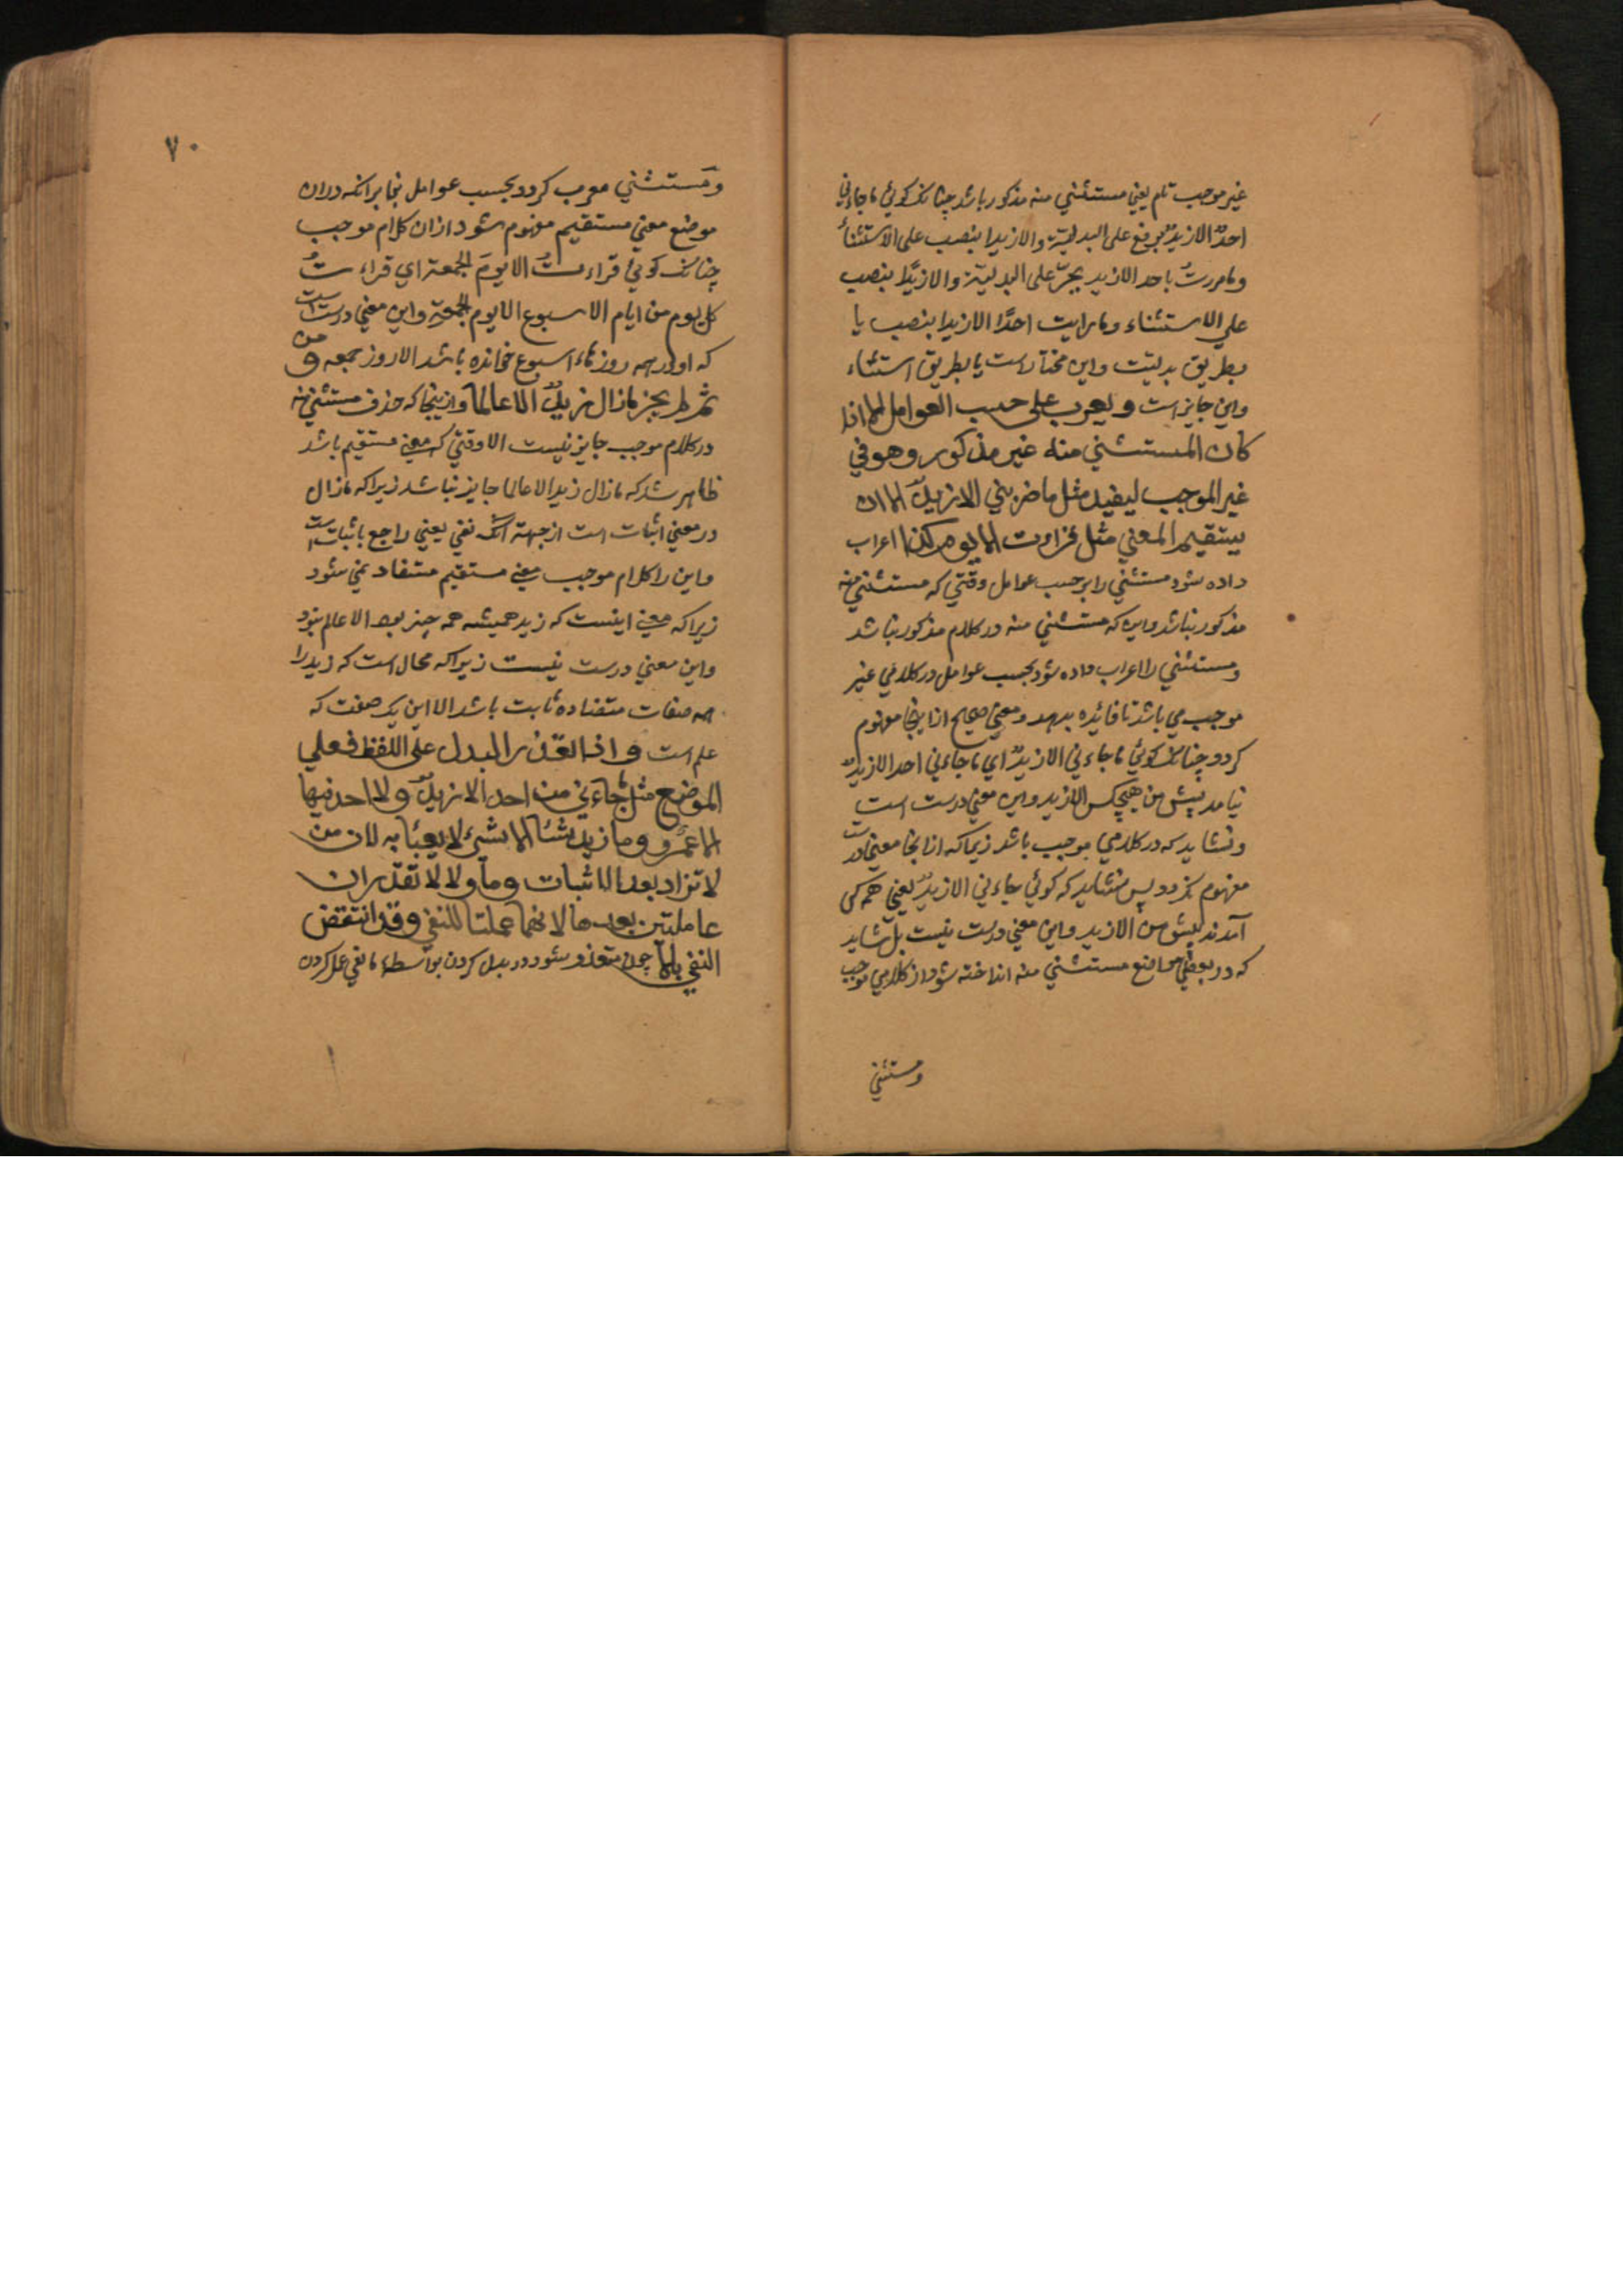 غیر موجب تام یعنی مستثنی منه مذکور باشد چنانک کوئی ما جاءنی
احدٌ الا زیدٌ برفع علی البدلیّة والا زیدا بنصب علی الاستثناء
وما مررتُ باحد الا زید بجرّ علی البدلیّة والا زیدًا بنصب
علی الاستثناء وما رایت احدًا الا زیدا بنصب یا
بطریق بدلیّت واین مختار است یا بطریق استثناء
واین جایز است ویعرب علی حسب العوامل اذا
کان المستثنی منه غیر مذکور وهو فی
غیر الموجب لیفید مثل ما ضربنی الا زیدٌ الا ان
یستقیم المعنی مثل قراءت الا یوم کذا اعراب
داده شود مستثنی را بر حسب عوامل وقتی که مستثنی منه
مذکور نباشد واین که مستثنی منه در کلام مذکور نباشد
ومستثنی را اعراب داده شود بحسب عوامل در کلامی غیر
موجب می باشد تا فائده بدهد ومعنی صحیح از اینجا مفهوم
کردد چنانک کوئی ما جاءنی الا زیدٌ ای ما جاءنی احد الا زیدٌ
نیامد پیش من هیچکس الا زید واین معنی درست است
ونشاید که در کلامی موجب باشد زیراکه از انجا معنی درست
مفهوم نکردد پس نشاید که کوئی جاءنی الا زیدٌ یعنی همه کس
آمدند پیش من الا زید واین معنی درست نیست بل شاید
که در بعضی مواضع مستثنی منه انداخته شود از کلامی موجب
ومستثنی
۷۰
ومستثنی معرب کردد بحسب عوامل بنا برانکه دران
موضع معنی مستقیم مفهوم شود ازان کلام موجب
چنانک کوئی قراءتُ الا یومَ الجمعة ای قراءتُ
کل یوم من ایام الاسبوع الا یوم الجمعة واین معنی درست است
که او در همه روزهاء اسبوع خوانده باشد الا روز جمعه ومن
ثم لم یجز ما زال زیدٌ الا عالما وازینجا که حذف مستثنی منه
در کلام موجب جایز نیست الا وقتی که معنی مستقیم باشد
ظاهر شد که ما زال زید الا عالما جایز نباشد زیراکه ما زال
در معنی اثبات است از جهته آنک نفی یعنی راجع باثبات است
واین را کلام موجب معنی مستقیم مستفاد نمی شود
زیراکه معنی اینست که زید همیشه همه چیز بود الا عالم نبود
واین معنی درست نیست زیراکه محال است که زید را
همه صفات متضاده ثابت باشد الا این یک صفت که
علم است واذا تعذّر البدل علی اللفظ فعلی
الموضع مثل ما جاءنی من احد الا زیدٌ ولا احد فیها
الا عمرٌو وما زید شئا الا شیء لا یعبئا به لان من
لا تزاد بعد الاثبات وما ولا لا تقدّران
عاملتین بعدها لانهما عملتا للنفی وقد انتقض
النفی بالا چون متعذر شود در بدل کردن بواسطه مانعی عمل کردن